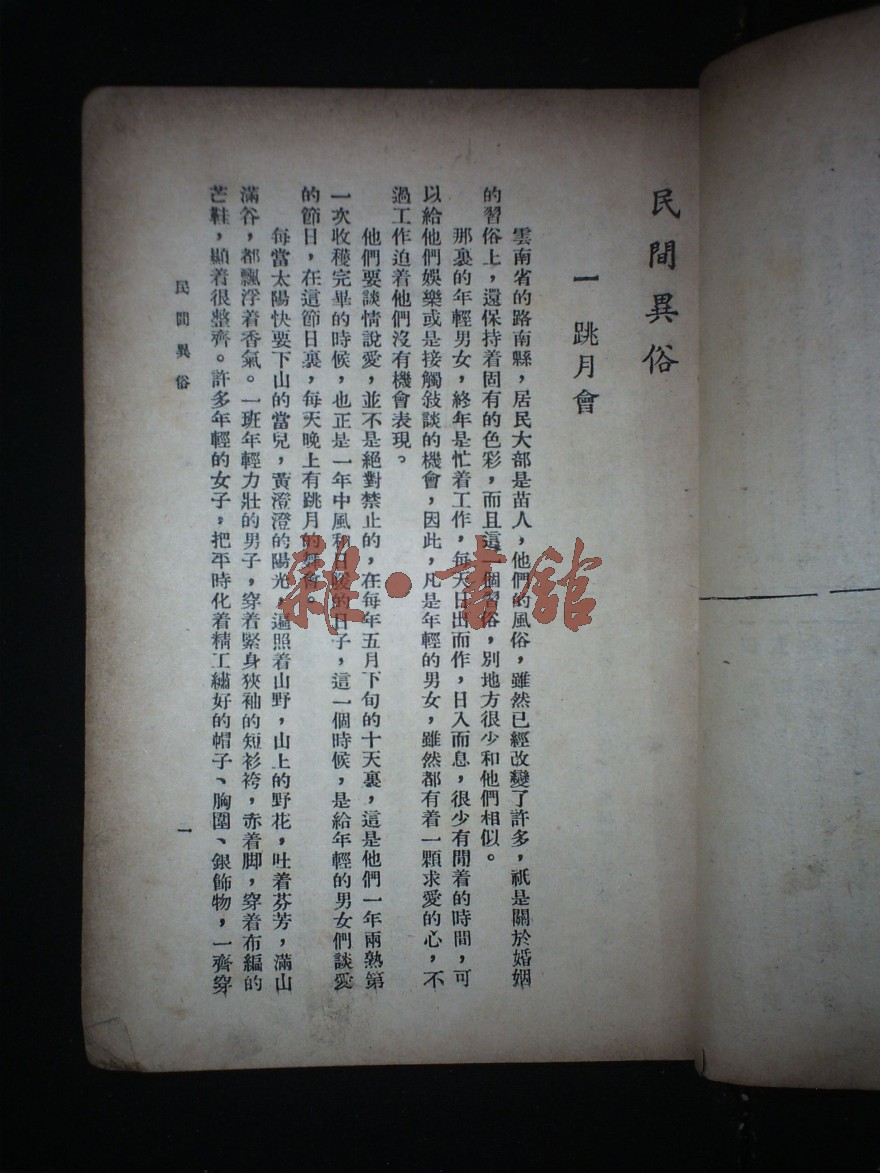 民間異俗
一　跳月會
雲南省的路南縣，居民大部是苗人，他們的風俗，雖然已經改變了許多，祇是關於婚姻
的習俗上，還保持着固有的色彩，而且這一個習俗，別地方很少和他們相似。
那裏的年輕男女，終年是忙着工作，每天日出而作，日入而息，很少有閒着的時間，可
以給他們娛樂或是接觸敍談的機會，因此，凡是年輕的男女，雖然都有着一顆求愛的心，不
過工作迫着他們沒有機會表現。
他們要談情說愛，並不是絕對禁止的，在每年五月下旬的十天裏，這是他們一年兩熟第
一次收穫完畢的時候，也正是一年中風和日暖的日子，這一個時候，是給年輕的男女們談愛
的節日，在這節日裏，每天晚上有跳月的舞會。
每當太陽快要下山的當兒，黃澄澄的陽光，遍照着山野，山上的野花，吐着芬芳，滿山
滿谷，都飄浮着香氣。一班年輕力壯的男子，穿着緊身狹袖的短衫袴，赤着脚，穿着布編的
芒鞋，顯着很整齊。許多年輕的女子，把平時化着精工繡好的帽子、胸圍、銀飾物，一齊穿
民間異俗
一
雜·書館